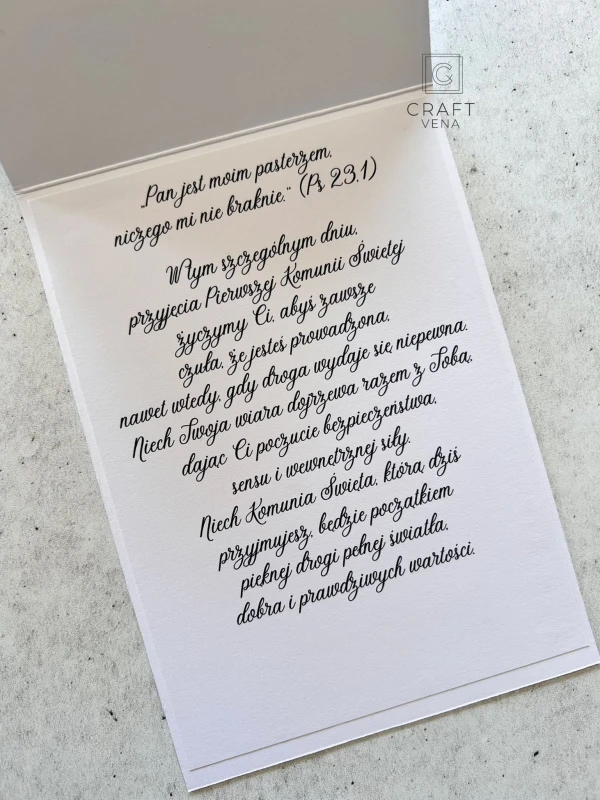 C
CRAFT
VENA
„Pan jest moim pasterzem,
niczego mi nie braknie.” (Ps 23,1)
W tym szczególnym dniu,
przyjęcia Pierwszej Komunii Świętej
życzymy Ci, abyś zawsze
czuła, że jesteś prowadzona,
nawet wtedy, gdy droga wydaje się niepewna.
Niech Twoja wiara dojrzewa razem z Tobą,
dając Ci poczucie bezpieczeństwa,
sensu i wewnętrznej siły.
Niech Komunia Święta, którą dziś
przyjmujesz, będzie początkiem
pięknej drogi pełnej światła,
dobra i prawdziwych wartości.